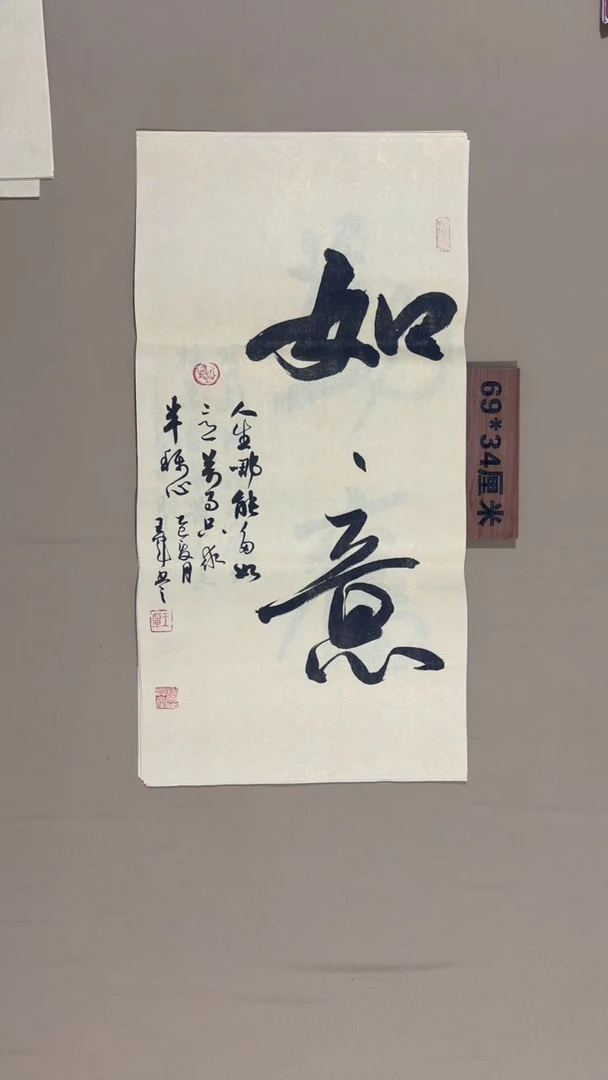 如意
人生哪能多如
意萬事只求
半称心
乙巳夏月
69*34厘米